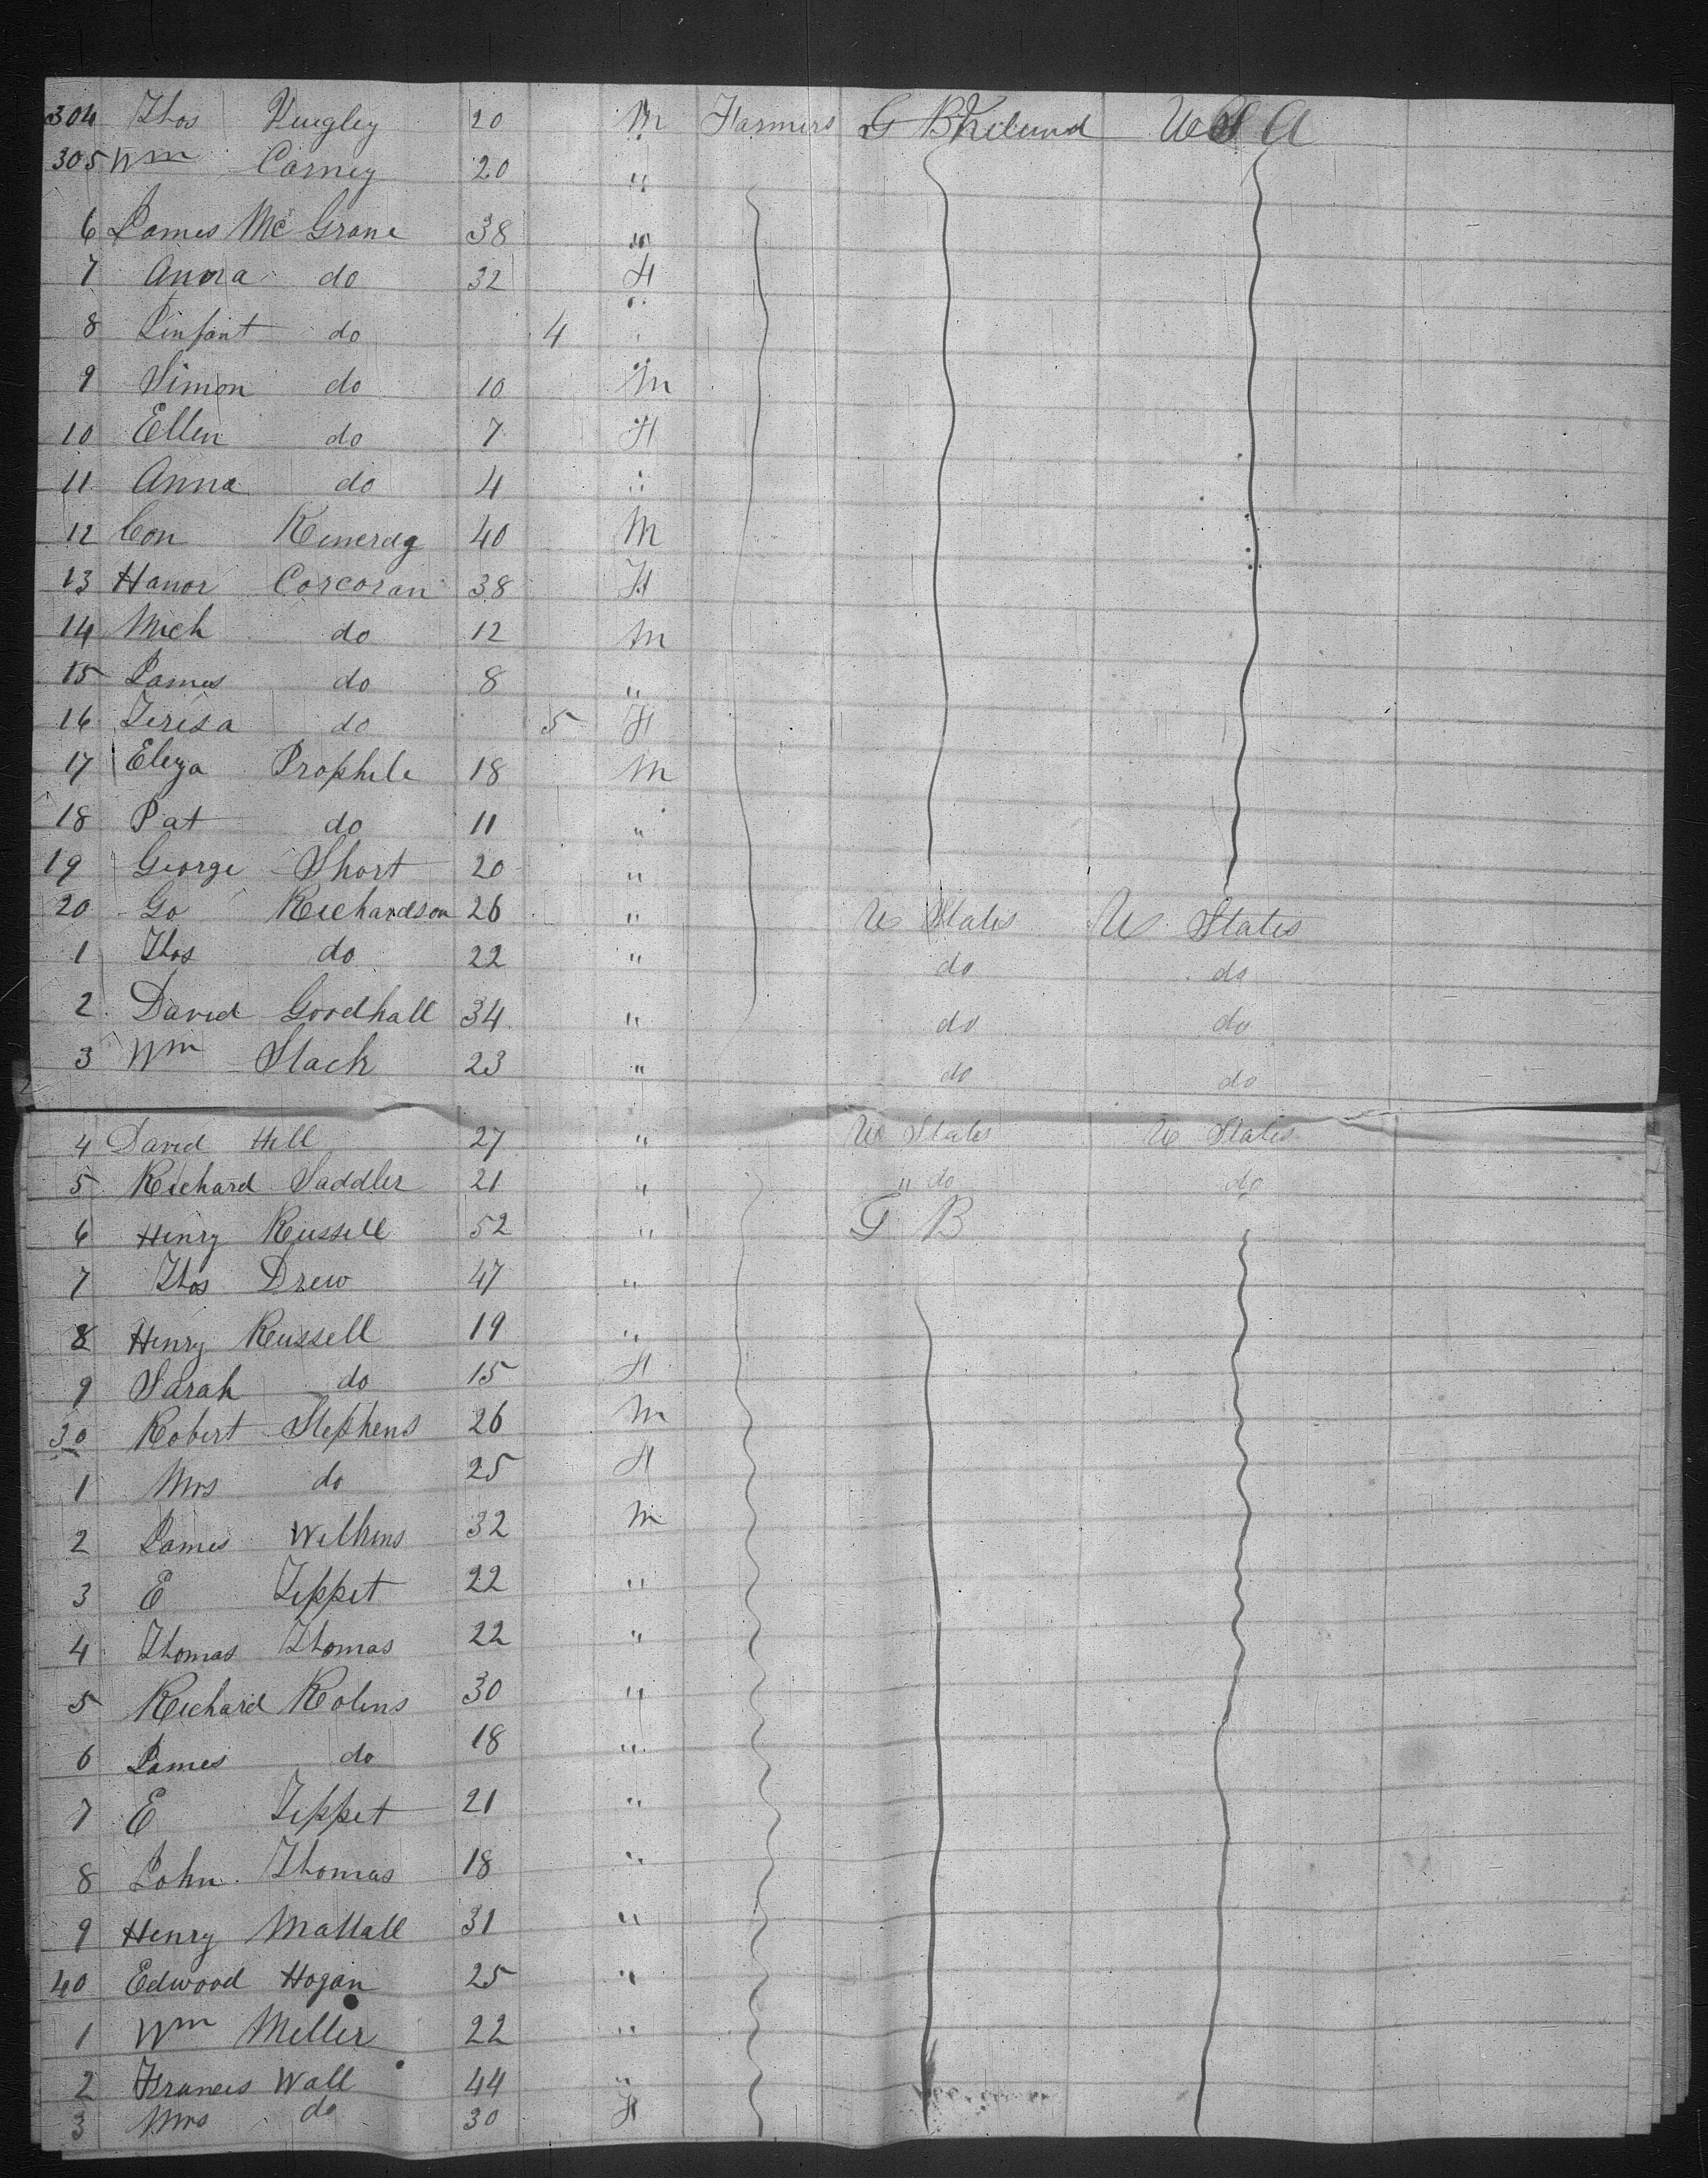 304 Thos Quigley 20 M Farmers G B Ireland U S A
305 Wm Carney 20 "
6 James Mc Grane 38 "
7 Anora do 32 F
8 Infant do 4 "
9 Simon do 10 M
10 Ellen do 7 F
11 Anna do 4 "
12 Con 40 M
13 Hanor Corcoran 38 F
14 Mich do 12 M
15 James do 8 "
16 Teresa do 5 F
17 Eliza Prophile 18 M
18 Pat do 11 "
19 George Short 20 "
20 Go Richardson 26 " U States U States
1 Thos do 22 " do do
2 David Goodhall 34 " do do
3 Wm Slack 23 " do do
4 David Hill 27 " U States U States
5 Richard Saddler 21 " " do do
6 Henry Russell 52 " G B
7 Thos Drew 47 "
8 Henry Russell 19 "
9 Sarah do 15 F
30 Robert Stephens 26 M
1 Mrs do 25 F
2 James Wilkins 32 M
3 E Tippet 22 "
4 Thomas Thomas 22 "
5 Richard Rolins 30 "
6 James do 18 "
7 E Tippet 21 "
8 John Thomas 18 "
9 Henry Mattall 31 "
40 Edwood Hogan 25 "
1 Wm Miller 22 "
2 Francis Wall 44 "
3 Mrs do 30 F